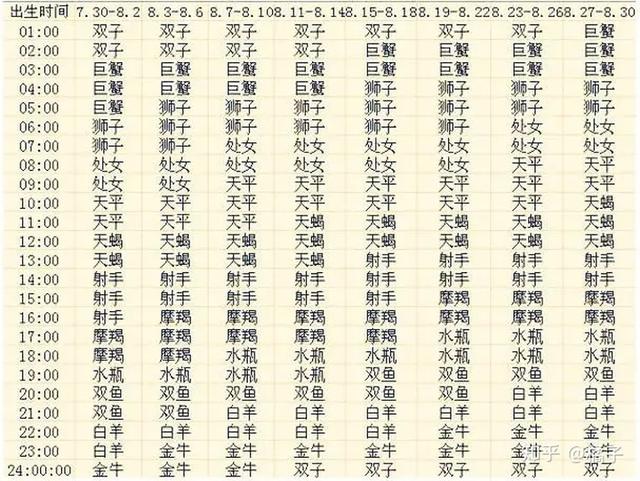 出生时间 7.30-8.2 8.3-8.6 8.7-8.10 8.11-8.14 8.15-8.18 8.19-8.22 8.23-8.26 8.27-8.30
01:00 双子 双子 双子 双子 双子 双子 双子 巨蟹
02:00 双子 双子 双子 双子 巨蟹 巨蟹 巨蟹 巨蟹
03:00 巨蟹 巨蟹 巨蟹 巨蟹 巨蟹 巨蟹 巨蟹 巨蟹
04:00 巨蟹 巨蟹 巨蟹 巨蟹 狮子 狮子 狮子 狮子
05:00 巨蟹 狮子 狮子 狮子 狮子 狮子 狮子 狮子
06:00 狮子 狮子 狮子 狮子 狮子 狮子 处女 处女
07:00 狮子 狮子 处女 处女 处女 处女 处女 处女
08:00 处女 处女 处女 处女 处女 处女 天平 天平
09:00 处女 处女 天平 天平 天平 天平 天平 天平
10:00 天平 天平 天平 天平 天平 天平 天平 天蝎
11:00 天平 天平 天平 天蝎 天蝎 天蝎 天蝎 天蝎
12:00 天蝎 天蝎 天蝎 天蝎 天蝎 天蝎 天蝎 天蝎
13:00 天蝎 天蝎 天蝎 天蝎 射手 射手 射手 射手
14:00 射手 射手 射手 射手 射手 射手 射手 射手
15:00 射手 射手 射手 射手 射手 摩羯 摩羯 摩羯
16:00 射手 摩羯 摩羯 摩羯 摩羯 摩羯 摩羯 摩羯
17:00 摩羯 摩羯 摩羯 摩羯 摩羯 水瓶 水瓶 水瓶
18:00 摩羯 摩羯 水瓶 水瓶 水瓶 水瓶 水瓶 水瓶
19:00 水瓶 水瓶 水瓶 水瓶 双鱼 双鱼 双鱼 双鱼
20:00 双鱼 双鱼 双鱼 双鱼 双鱼 双鱼 白羊 白羊
21:00 双鱼 双鱼 白羊 白羊 白羊 白羊 白羊 白羊
22:00 白羊 白羊 白羊 白羊 白羊 金牛 金牛 金牛
23:00 白羊 金牛 金牛 金牛 金牛 金牛 金牛
24:00:00 金牛 金牛 金牛 双子 双子 双子 双子 双子
知乎